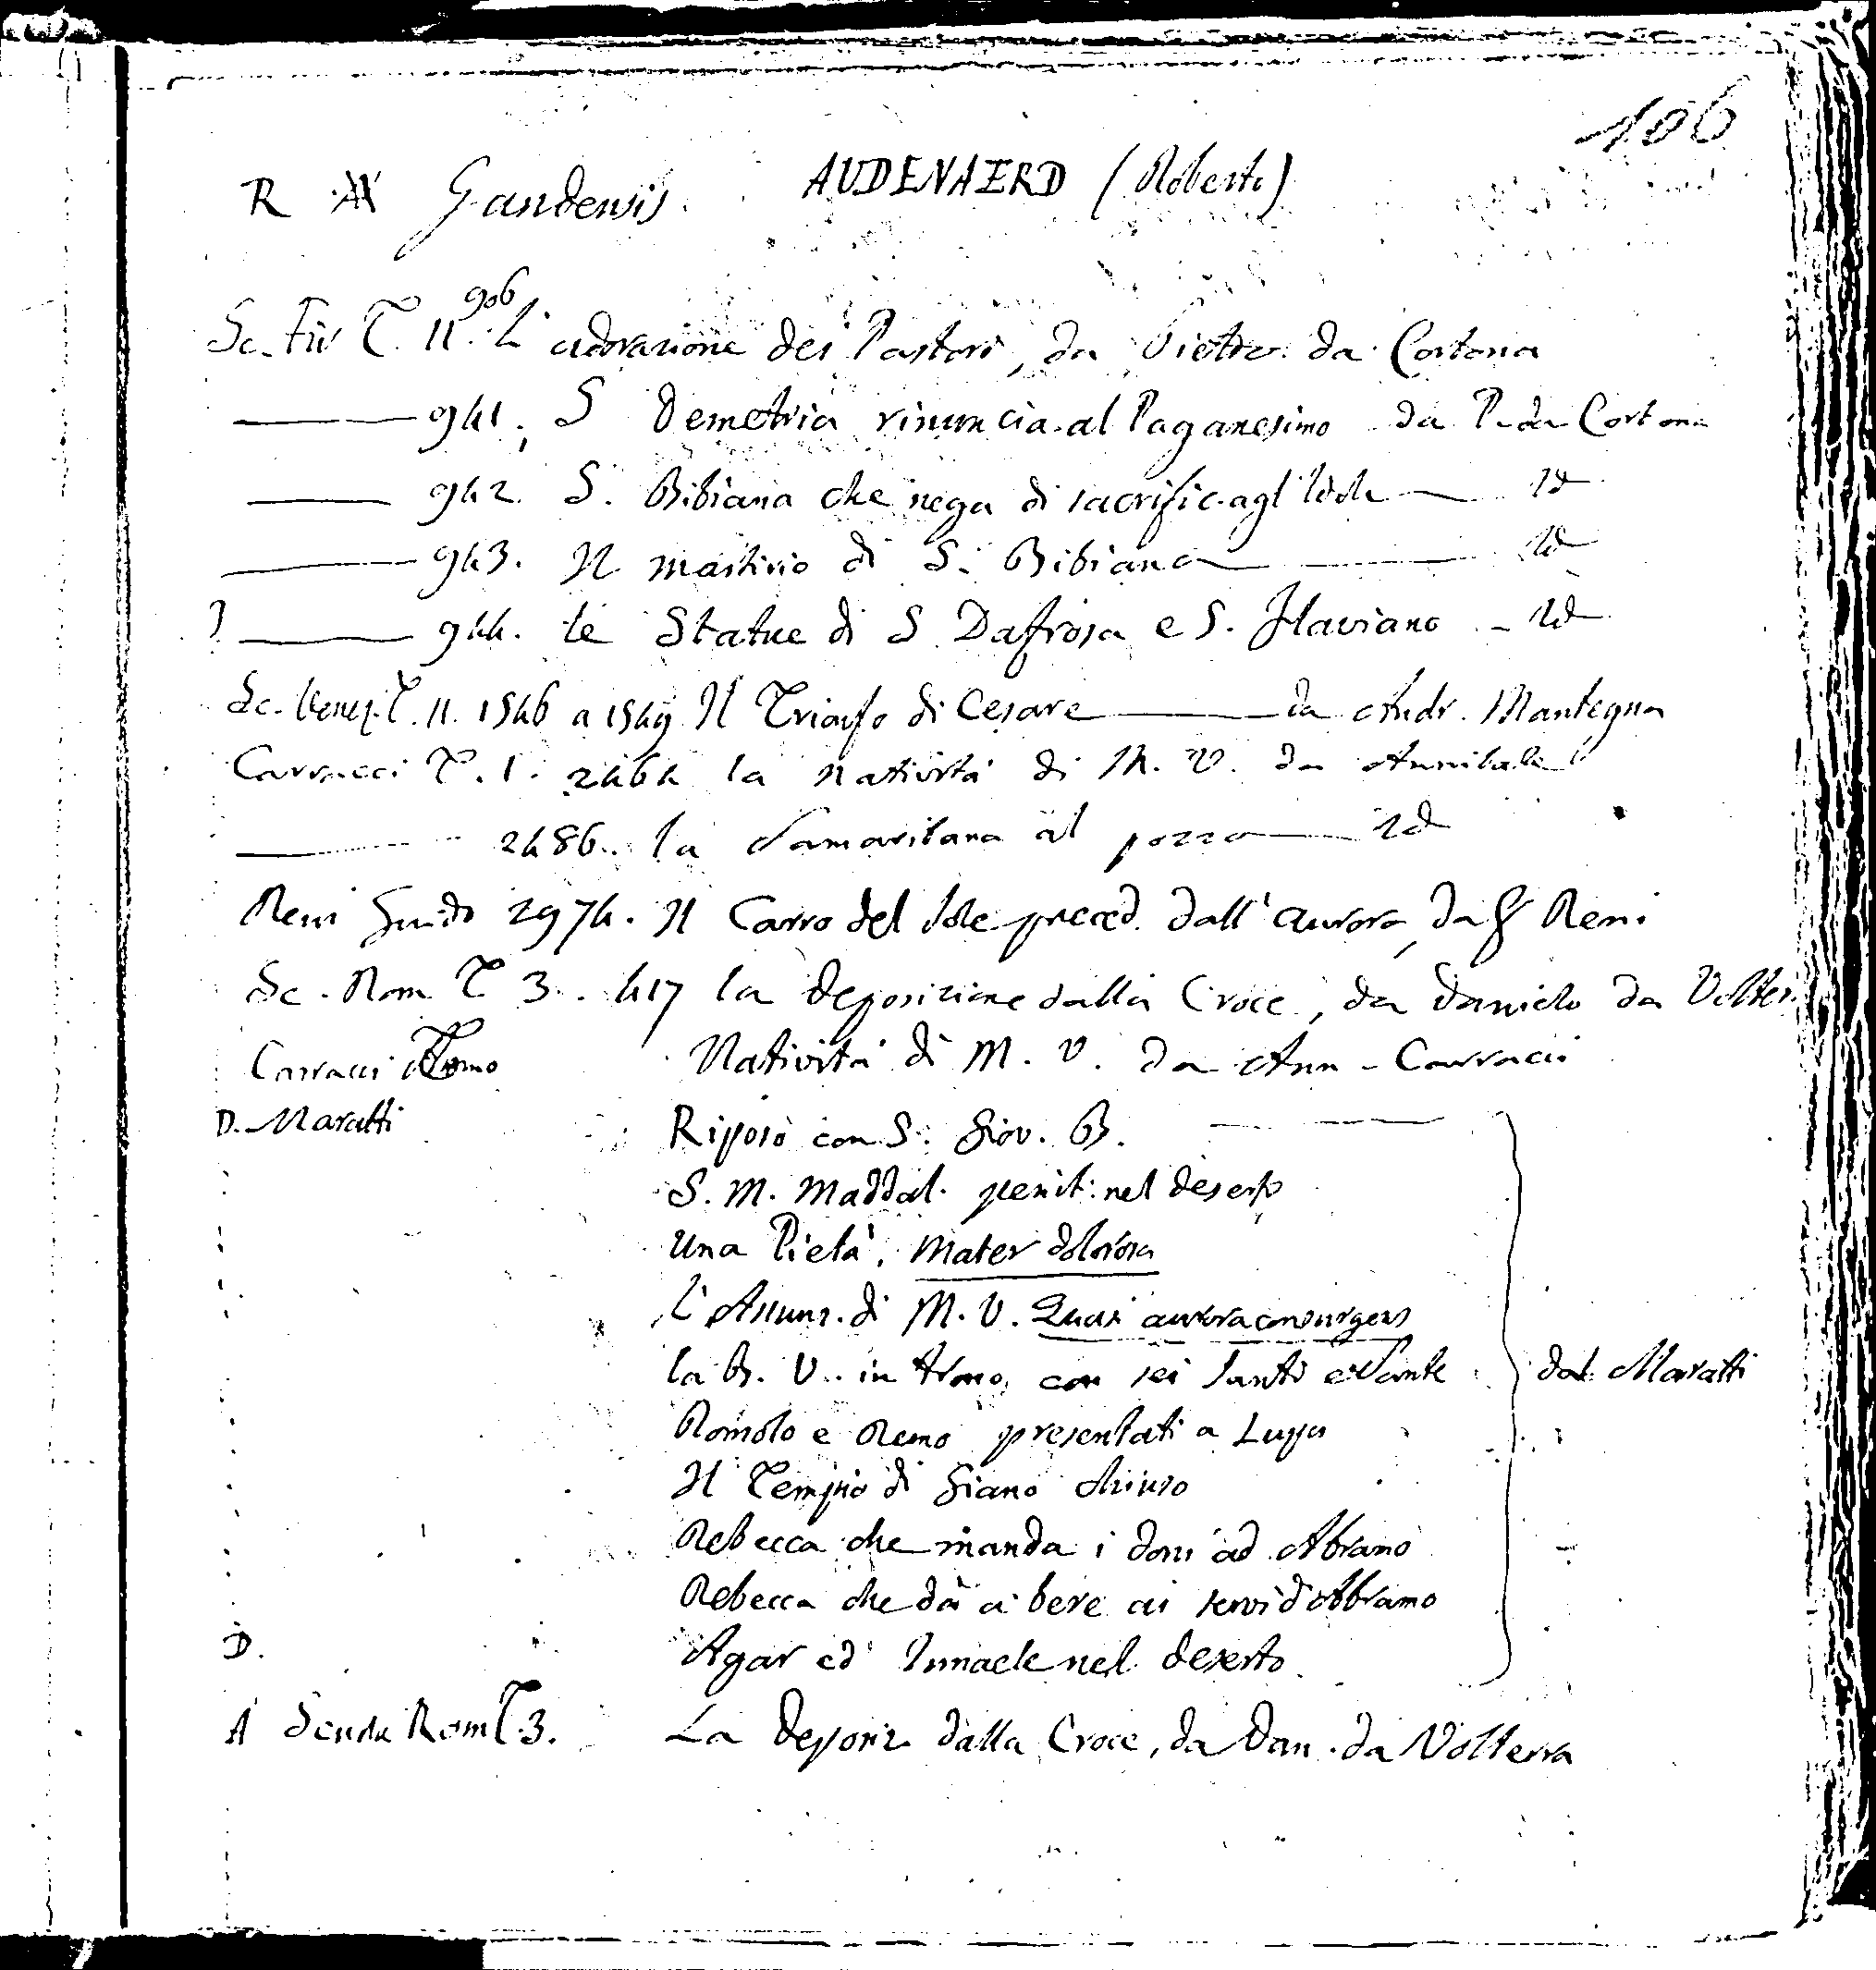 106
R A Gandensis AUDENAERD (Roberto)
Sc. Fir T. II. 906 L'adorazione dei Pastori, da Pietro da Cortona
941. S Demetria rinuncia al Paganesimo da P. da Cortona
942. S. Bibiana che nega di sacrific. agl'Idoli Id
943. Il martirio di S. Bibiana Id
? 944. le Statue di S Dafrosa e S. Flaviano Id
Sc. Venez. T. II. 1546 a 1549 Il Trionfo di Cesare da Andr. Mantegna
Carracci T. I. 2464 la natività di M. V. da Annibale
2486. la Samaritana al pozzo Id
Reni Guido 2974. Il Carro del Sole preced. dall'aurora, da G Reni
Sc. Rom T 3. 417 la deposizione dalla Croce, da Daniele da Volter.
Carracci Tomo Natività di M. V. da Ann. Carracci
D. Maratti Riposo con S. Giov. B.
S. M. Maddal. penit. nel deserto
Una Pietà. Mater dolorosa
L'Assunz. di M. V. Quasi aurora consurgens
la B. V. in trono, con sei Santi e Sante dal Maratti
Romolo e Remo presentati a Lupa
Il Tempio di Giano chiuso
Rebecca che manda i doni ad Abramo
Rebecca che dà a bere ai servi d'Abbramo
D. Agar ed Ismaele nel deserto
A Scuola Rom T. 3. La Deposiz dalla Croce, da Dan. da Volterra